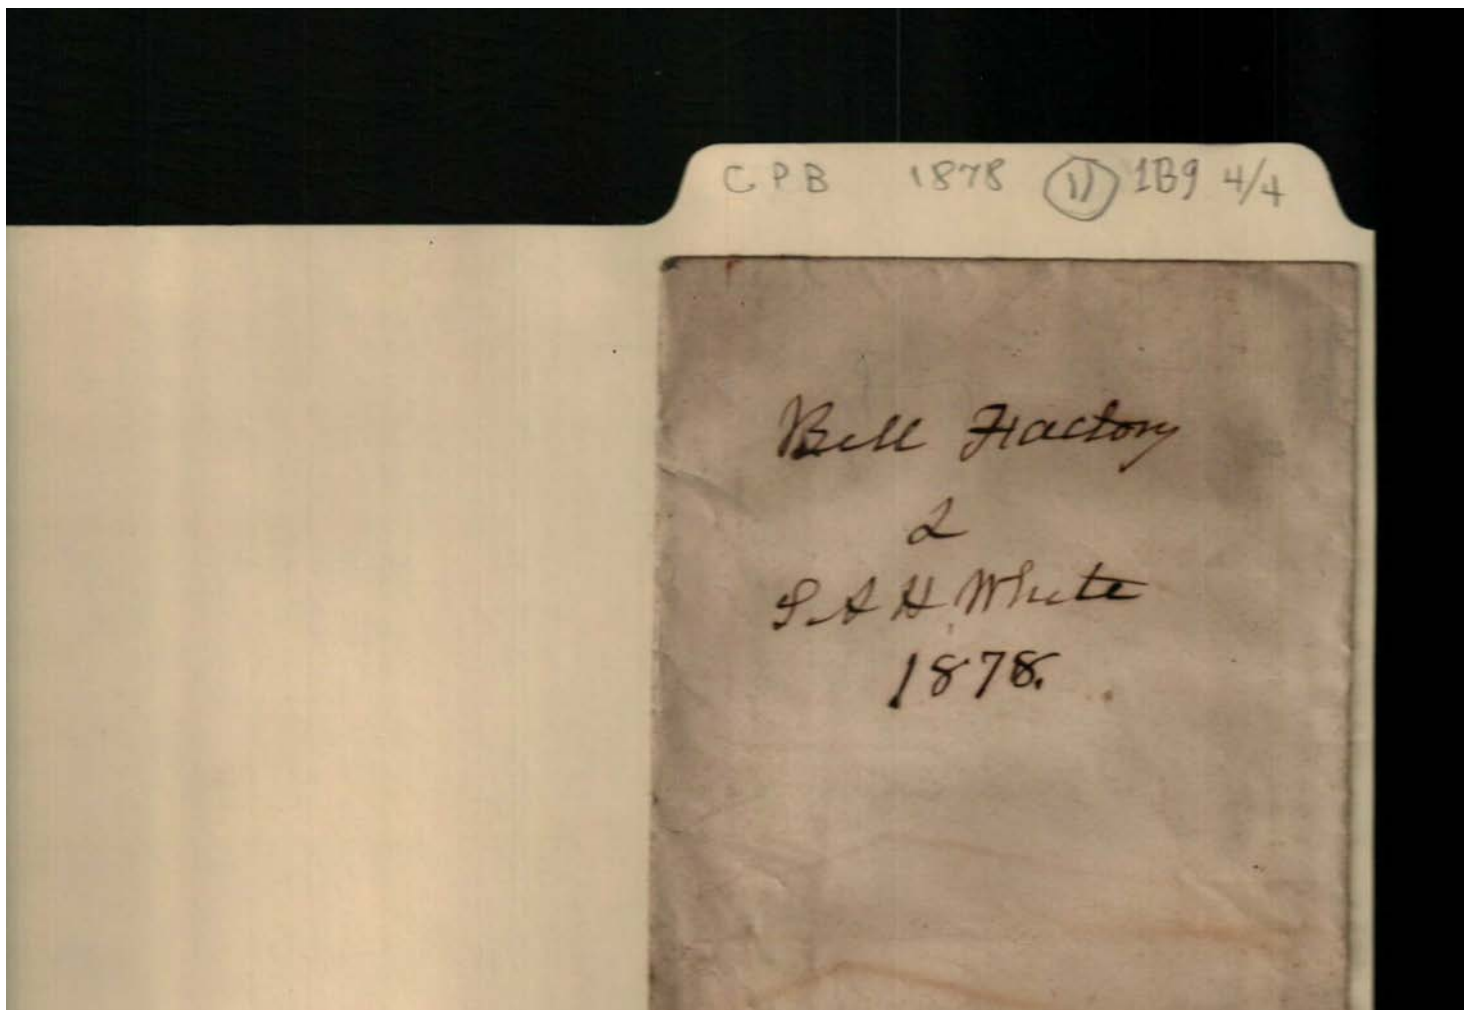 C P B 1878 11 1B9 4/4
Bell Factory
&
S A H White
1878.